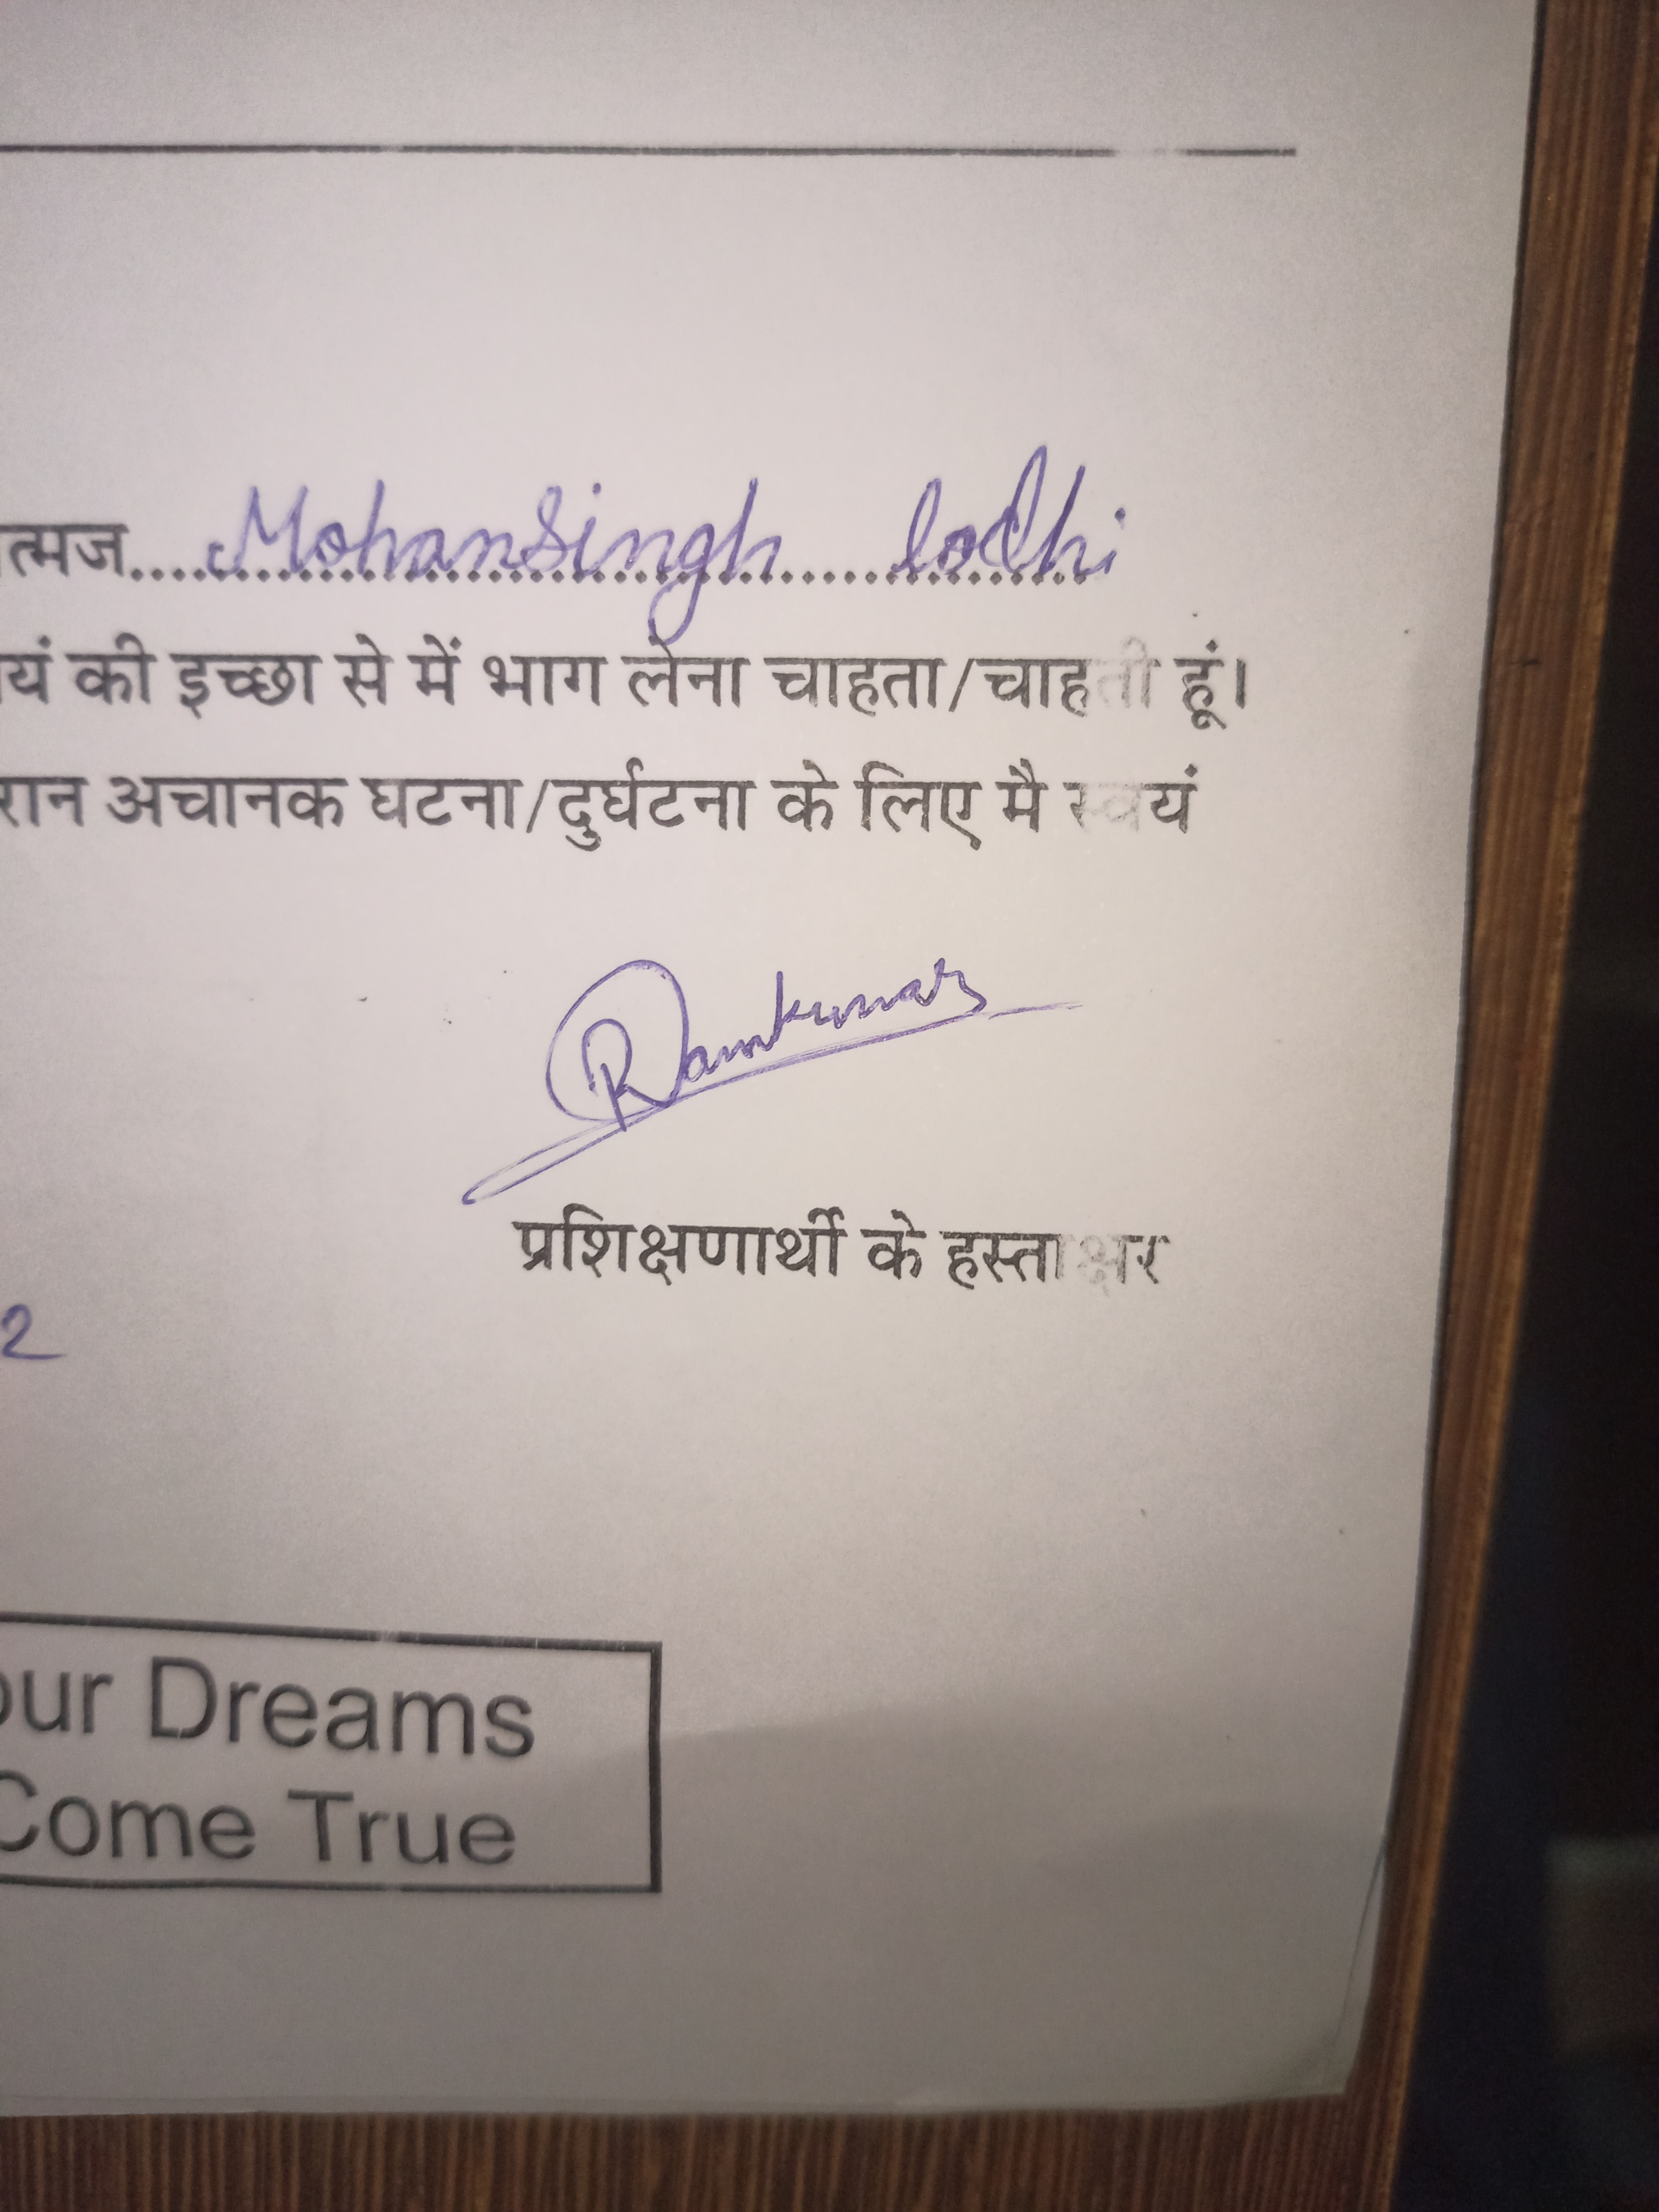 त्मज....Mohansingh lodhi
यं की इच्छा से में भाग लेना चाहता/चाहती हूं।
रान अचानक घटना/दुर्घटना के लिए मै स्वयं
Ramkumar
प्रशिक्षणार्थी के हस्ताक्षर
2
our Dreams
Come True